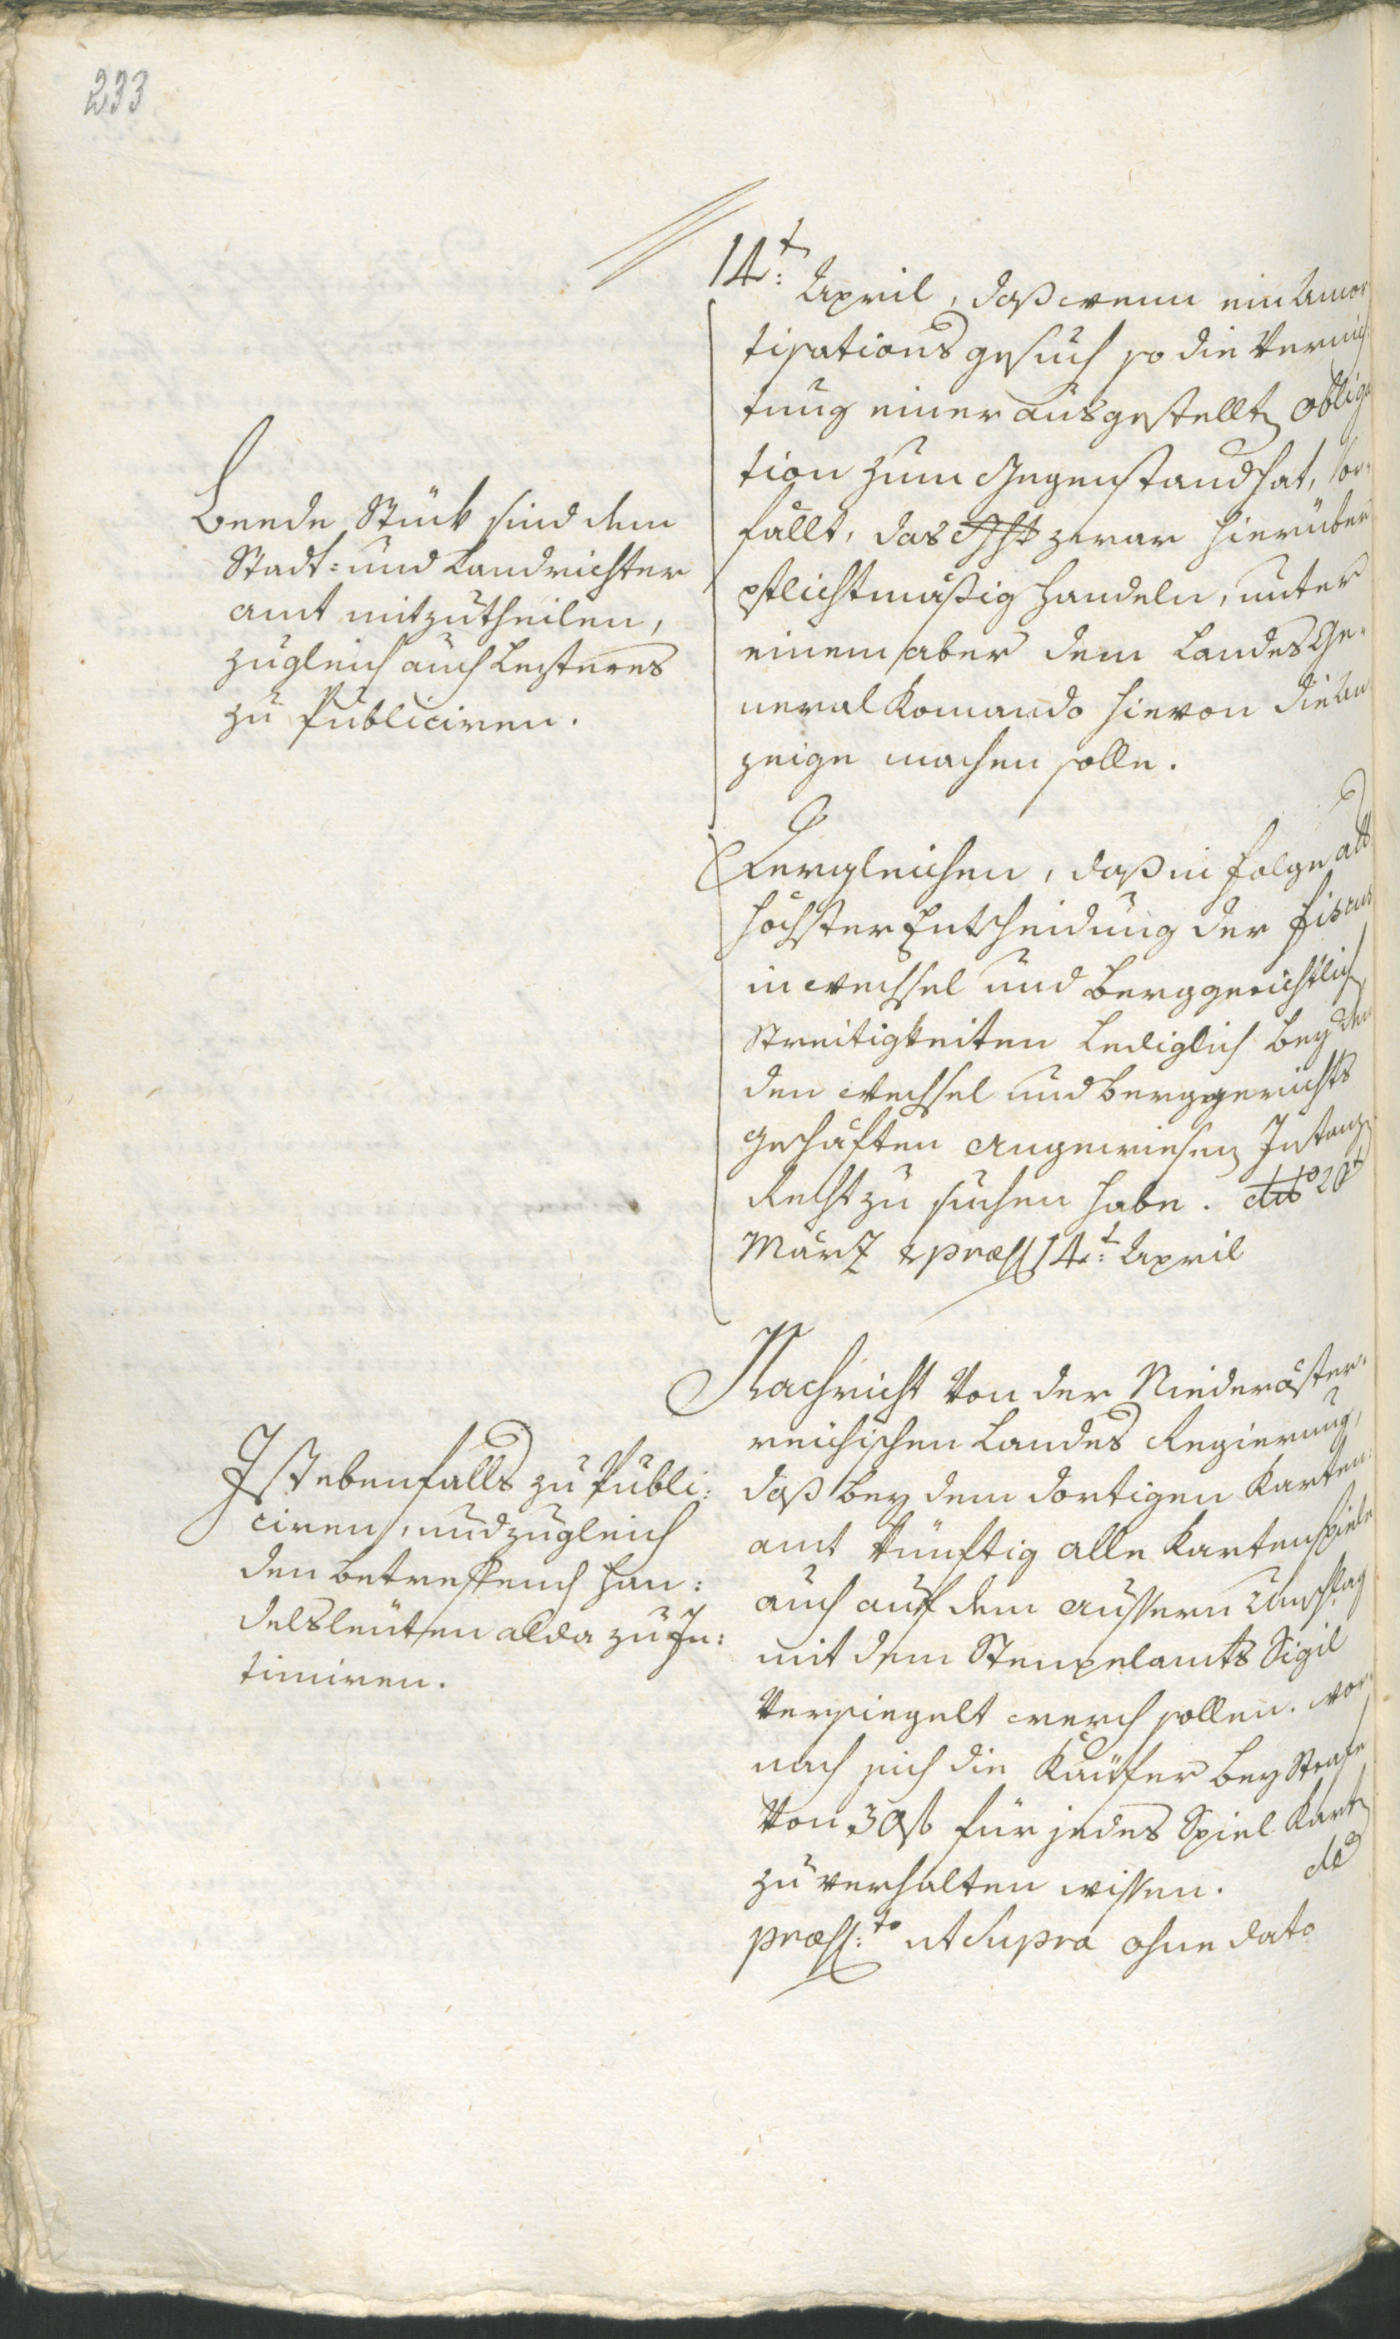 233
14t: April, daß wenn ein Amor
tisations gesuch so die Vernich
tung einer ausgestellten Obliga
tion zum Gegenstand hat, vor-
fallt, das zwar hierüber
pflichtmäßig handeln, unter
einem aber dem Landes Ge-
neral Komando hievon die An
zeige machen solle.
Beede Stück sind dem
Stadt= und Landrichter
amt mitzutheilen,
zugleich auch Lezteres
zu Publiciren.
Dergleichen, daß in folge all
höchster Entscheidung der Fiscus
in wechsel und Berggerichtlich
Streitigkeiten Lediglich bey den
den Wechsel und Berggerichts
geschäften angewiesen Instanz
Recht zu suchen habe. dto 20t
März & præss 14t: April
Nachricht Von der Niederöster-
reichischen Landes Regierung,
daß bey dem dortigen Karten
amt künftig alle Kartenspiele
auch auf dem aussern Umschlag
mit dem Stempelamts Sigil
Versiegelt werden sollen. wor
nach sich die Käufer bey Strafe
Von 30 f für jedes Spiel Karten
zu verhalten wissen. de
præss:to ut Supra ohne dato
Ist ebenfalls zu Publi:
ciren, und zugleich
den betreffend Han:
delsleüten alda zu In:
timiren.